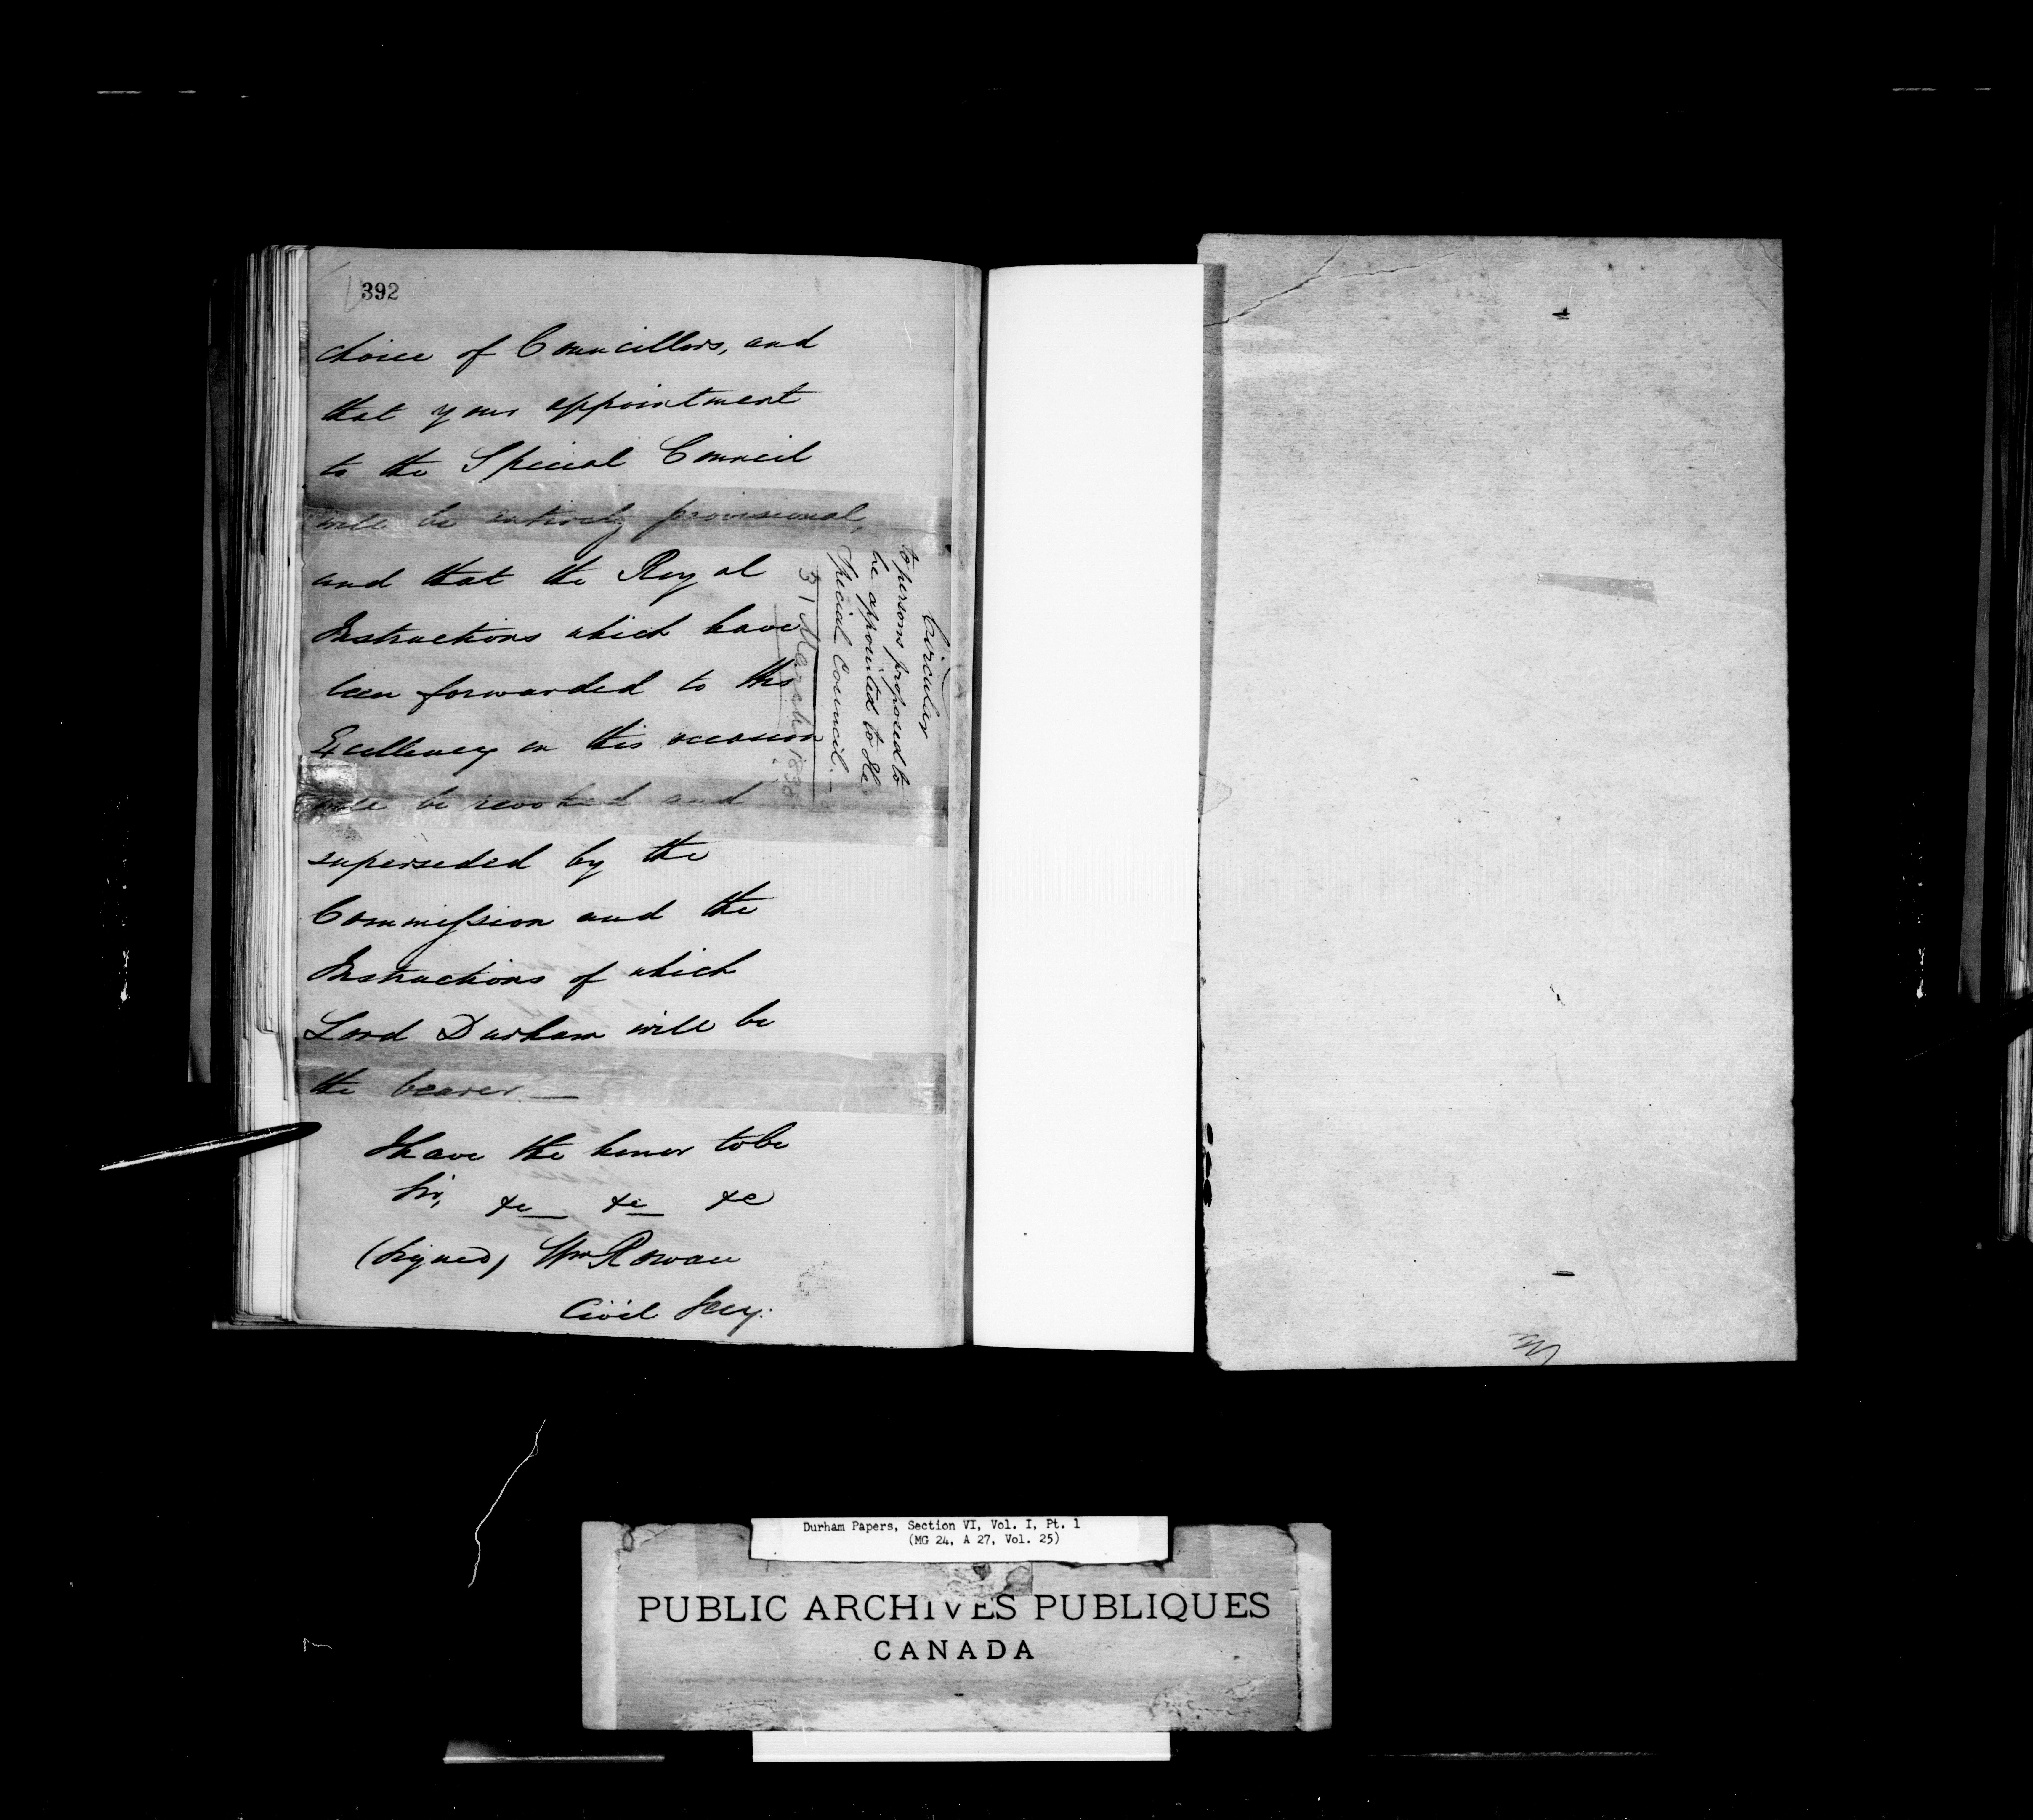 392
choice of Councillors, and
that your appointment
to the Special Council
will be entirely provisional,
and that the Royal
Instructions which have
been forwarded to His
Excellency on this occasion
will be revoked and
superseded by the
Commission and the
Instructions of which
Lord Durham will be
the bearer. —
I have the honor to be
Sir, &c &c &c
(Signed) Wm Rowan
Civil Secy.
Circular
to persons proposed to
be appointed to the
Special Council. —
31 March 1838.
Durham Papers, Section VI, Vol. I, Pt. 1
(MG 24, A 27, Vol. 25)
PUBLIC ARCHIVES PUBLIQUES
CANADA